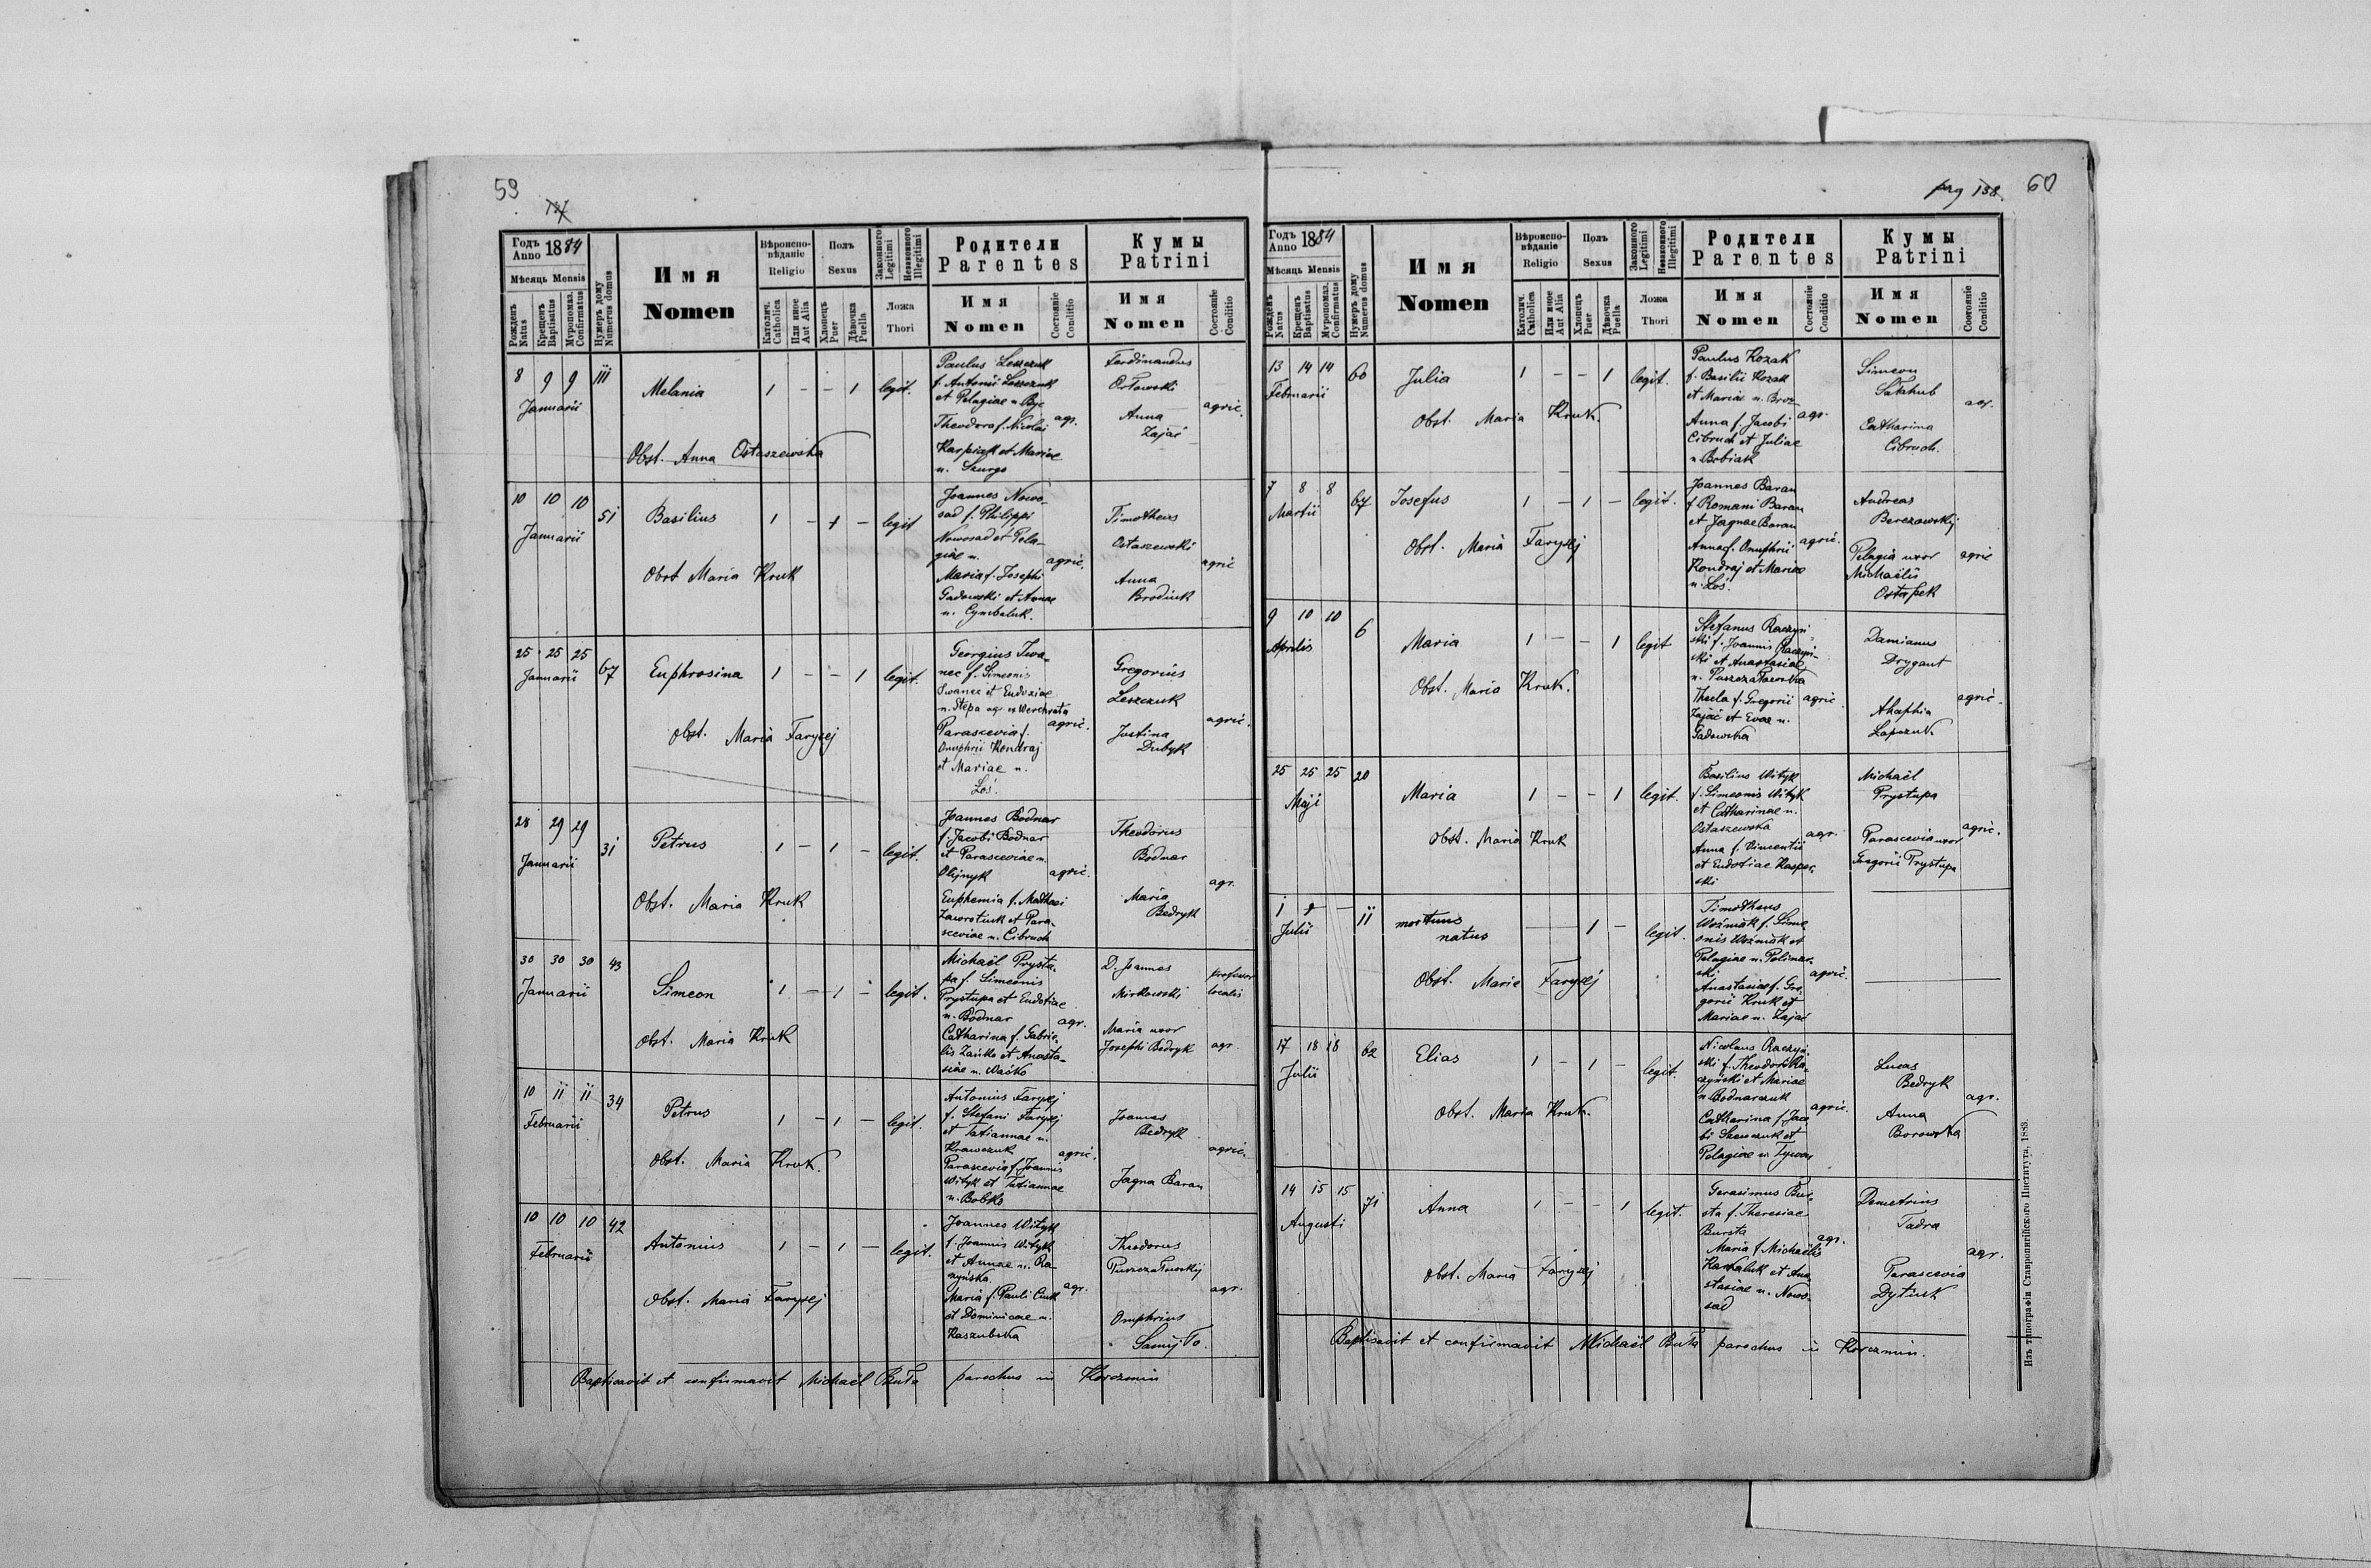 59
Годъ Anno 1884
Мѣсяць Mensis
Рожденъ Natus
Крещенъ Baptisatus
Мѵропомаз. Confirmatus
Нумеръ дому Numerus domus
Имя Nomen
Вѣроиспо-вѣданіе Religio
Католич. Catholica
Или иное Aut Alia
Полъ Sexus
Хлопецъ Puer
Дѣвочка Puella
Законного Legitimi
Незаконного Illegitimi
Ложа Thori
Родители Parentes
Имя Nomen
Состояніе Conditio
Кумы Patrini
Имя Nomen
Состояніе Conditio
8 9 9 III
Januarii
Melania
1 - - 1 legit.
Obst. Anna Ostaszewska
Paulus Leszczuk
f. Antonii Leszczuk
et Pelagiae n. Byc
Theodora f. Nicolai agr.
Karpiak et Mariae
n. Szurgo
Ferdinandus
Orłowski
Anna agric.
Zając
10 10 10 51
Januarii
Basilius
1 - 1 - legit
Obst Maria Kruk
Joannes Nowo-
sad f. Philippi
Nowosad et Pela-
giae n. agric.
Maria f. Josephi
Gadowski et Annae
n. Cymbaluk.
Timotheus
Ostaszewski
agric
Anna
Brodiuk
25 25 25 67
Januarii
Euphrosina
1 - - 1 legit.
Obst. Maria Farysej
Georgius Iwa-
nec f. Simeonis
Iwanec et Eudoxiae
n. Stepa agr. ex Werchrata
Parascevia f. agric.
Onuphrii Kondraj
et Mariae n.
Łoś.
Gregorius
Leszczuk
agric.
Justina
Dubyk
28 29 29 31
Januarii
Petrus
1 - 1 - legit.
Obst. Maria Kruk
Joannes Bodnar
f. Jacobi Bodnar
et Parasceviae n.
Olijnyk agric.
Euphemia f. Mathaei
Zaworotiuk et Para-
sceviae n. Cibruch
Theodorus
Bodnar
agr.
Maria
Bedryk
30 30 30 43
Januarii
Simeon
1 - 1 - legit.
Obst. Maria Kruk
Michaël Prystu-
pa f. Simeonis
Prystupa et Eudotiae
n. Bodnar agr.
Catharina f. Gabrie-
lis Zańko et Anasta-
siae n. Waśko
D. Joannes professor
Mirkowski localis
Maria uxor
Josephi Bedryk agr.
10 11 11 34
Februarii
Petrus
1 - 1 - legit.
Obst. Maria Kruk.
Antonius Farysej
f. Stefani Farysej
et Tatiannae n.
Krawczuk agric.
Parascevia f. Joannis
Wityk et Tatiannae
n. Bobko
Joannes
Bedryk
agric.
Jagna Baran
10 10 10 42
Februarii
Antonius
1 - 1 - legit.
Obst. Maria Farysej
Joannes Wityk
f. Joannis Wityk
et Annae n. Ra-
czyńska.
Maria f. Pauli Ciuk agr.
et Dominicae n.
Kaszubska
Theodorus
Puszczałowskij
agr.
Onuphrius
Samijło.
Baptisavit et confirmavit Michaël Buła parochus in Korczmin
pag 158. 60
Годъ Anno 1884
Мѣсяць Mensis
Рожденъ Natus
Крещенъ Baptisatus
Мѵропомаз. Confirmatus
Нумеръ дому Numerus domus
Имя Nomen
Вѣроиспо-вѣданіе Religio
Католич. Catholica
Или иное Aut Alia
Полъ Sexus
Хлопецъ Puer
Дѣвочка Puella
Законного Legitimi
Незаконного Illegitimi
Ложа Thori
Родители Parentes
Имя Nomen
Состояніе Conditio
Кумы Patrini
Имя Nomen
Состояніе Conditio
13 14 14 60
Februarii
Julia
1 - - 1 legit.
Obst. Maria Kruk.
Paulus Kozak
f. Basilii Kozak
et Mariae n. Broz
Anna f. Jacobi agr.
Cibruch et Juliae
n. Bobiak
Simeon
agr.
Catharina
Cibruch.
7 8 8 67
Martii
Josefus
1 - 1 - legit.
Obst. Maria Farysej
Joannes Baran
f. Romani Baran
et Jagnae Baran
Anna f. Onuphrii agric.
Kondraj et Mariae
n. Łoś.
Andreas
Berezowskij
Pelagia uxor agric
Michaëlis
Ostapek
9 10 10 6
Aprilis
Maria
1 - - 1 legit
Obst. Maria Kruk.
Stefanus Raczyń-
ski f. Joannis Raczyń-
ski et Anastasiae
n. Puszczałowska
Thecla f. Gregorii agric.
Zając et Evae n.
Gadowska
Damianus
Drygant
agric.
Ahaphia
Łapczuk.
25 25 25 20
Maji
Maria
1 - - 1 legit.
Obst. Maria Kruk
Basilius Wityk
f. Simeonis Wityk
et Catharinae n.
Ostaszewska agr.
Anna f. Vincentii
et Eudotiae Kasper-
ski
Michaël
Prystupa
agric.
Parascevia uxor
Gregorii Prystupa
1 - - 11
Julii
mortuus
natus
- - 1 - legit.
Obst. Maria Farysej
Timotheus
Woźniak f. Sime-
onis Woźniak et
Pelagiae n. Polinar-
ski agric.
Anastasia f. Gre-
gorii Kruk et
Mariae n. Zając
17 18 18 62
Julii
Elias
1 - 1 - legit.
Obst. Maria Kruk.
Nicolaus Raczyń-
ski f. Theodori Ra-
czyński et Mariae
n. Bodnarczuk agric.
Catharina f. Jaco-
bi Szewczuk et
Pelagiae n.
Lucas
Bedryk
agr.
Anna
Borowska
14 15 15 71
Augusti
Anna
1 - - 1 legit.
Obst. Maria Farysej
Gerasimus Bur-
sta f. Theresiae
Bursta agr.
Maria f. Michaëlis
et Ana-
stasiae n. Nowo-
sad
Demetrius
Tadra
agr.
Parascevia
Dytiuk
Baptisavit et confirmavit Michaël Buła parochus in Korczmin.
Изъ типографіи Ставропигійского Института, 1883.